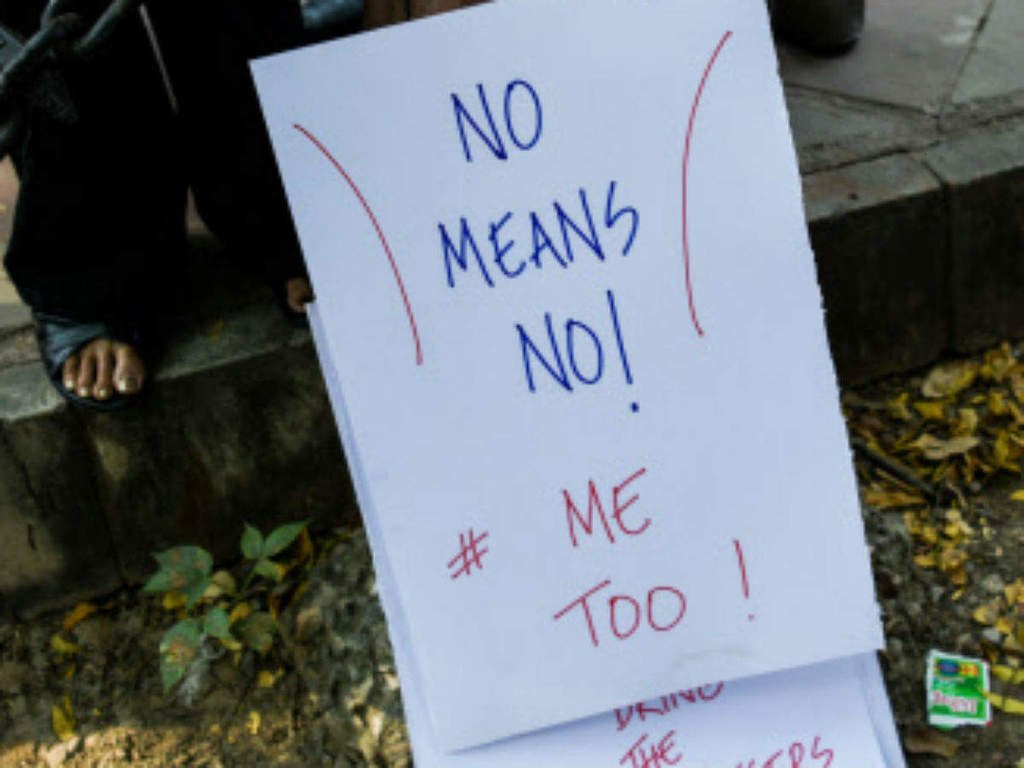 NO
MEANS
NO!
# ME
TOO !
BRING
THE